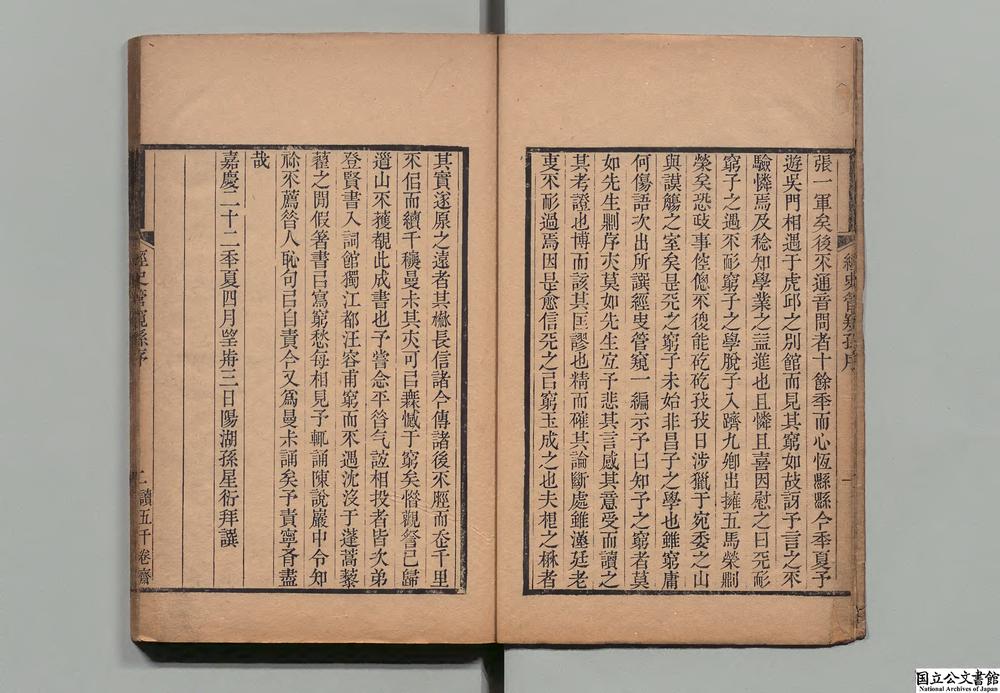 張一軍矣後不通音問者十餘秊而心恆縣縣今秊夏予
遊吳門相遇于虎邱之別館而見其窮如故訝予言之不
驗憐焉及稔知學業之益進也且憐且喜因慰之曰兂耏
窮子之遇不耏窮子之學脫子入躋九卿出擁五馬榮劘
榮矣恐歧事倥傯不復能矻矻孜孜日涉獵于宛委之山
與謨觴之室矣是兂之窮子未始非昌子之學也雖窮庸
何傷語次出所譔經㕜管窺一編示予曰知予之窮者莫
如先生劘序亦莫如先生宐予悲其言感其意受而讀之
其考證也博而該其匡謬也精而確其論斷處雖漢廷老
吏不耏過焉因是愈信兂之㠯窮玉成之也夫根之楙者
其實遂原之遠者其㳅長信諸今傳諸後不脛而赱千里
不侶而續千穮曼卡其亦可㠯無憾于窮矣惜觀詧已歸
道山不獲覩此成書也予嘗念平昝气誼相投者皆次弟
登賢書入詞館獨江都汪容甫窮而不遇沈沒于蓬蒿藜
藿之閒假箸書㠯寫窮愁每相見予輒誦陳說巖中令知
尒不薦昝人恥句㠯自責今又為曼卡誦矣予責寧有盡
哉
嘉慶二十二秊夏四月朢歬三日陽湖孫星衍拜譔
經史管窺孫序
一
經史管窺孫序
二
讀五千卷齋
国立公文書館
National Archives of Japan